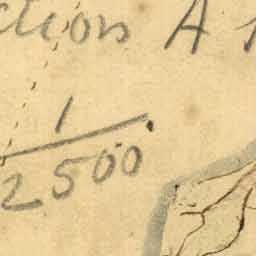 ction A
1
2500